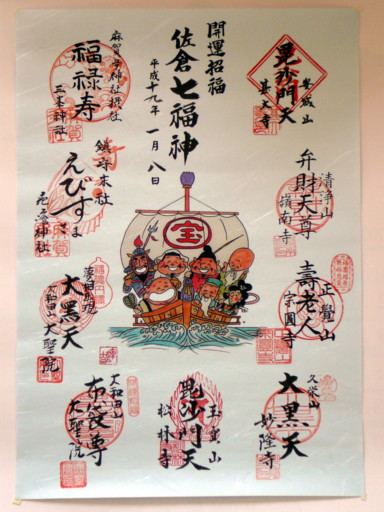 開運招福
佐倉七福神
平成十九年一月八日
毘沙門天
甚大寺
清浄山
弁財天尊
嶺南寺
正覺山
壽老人
宗圓寺
久栄山
大黒天
妙隆寺
玉寶山
毘沙門天
松林寺
麻賀多神社摂社
福禄寿
三峯神社
鎮守末社
えびすさま
神社
大黒天
大和田山
大聖院
大和田山
布袋尊
大聖院
宝